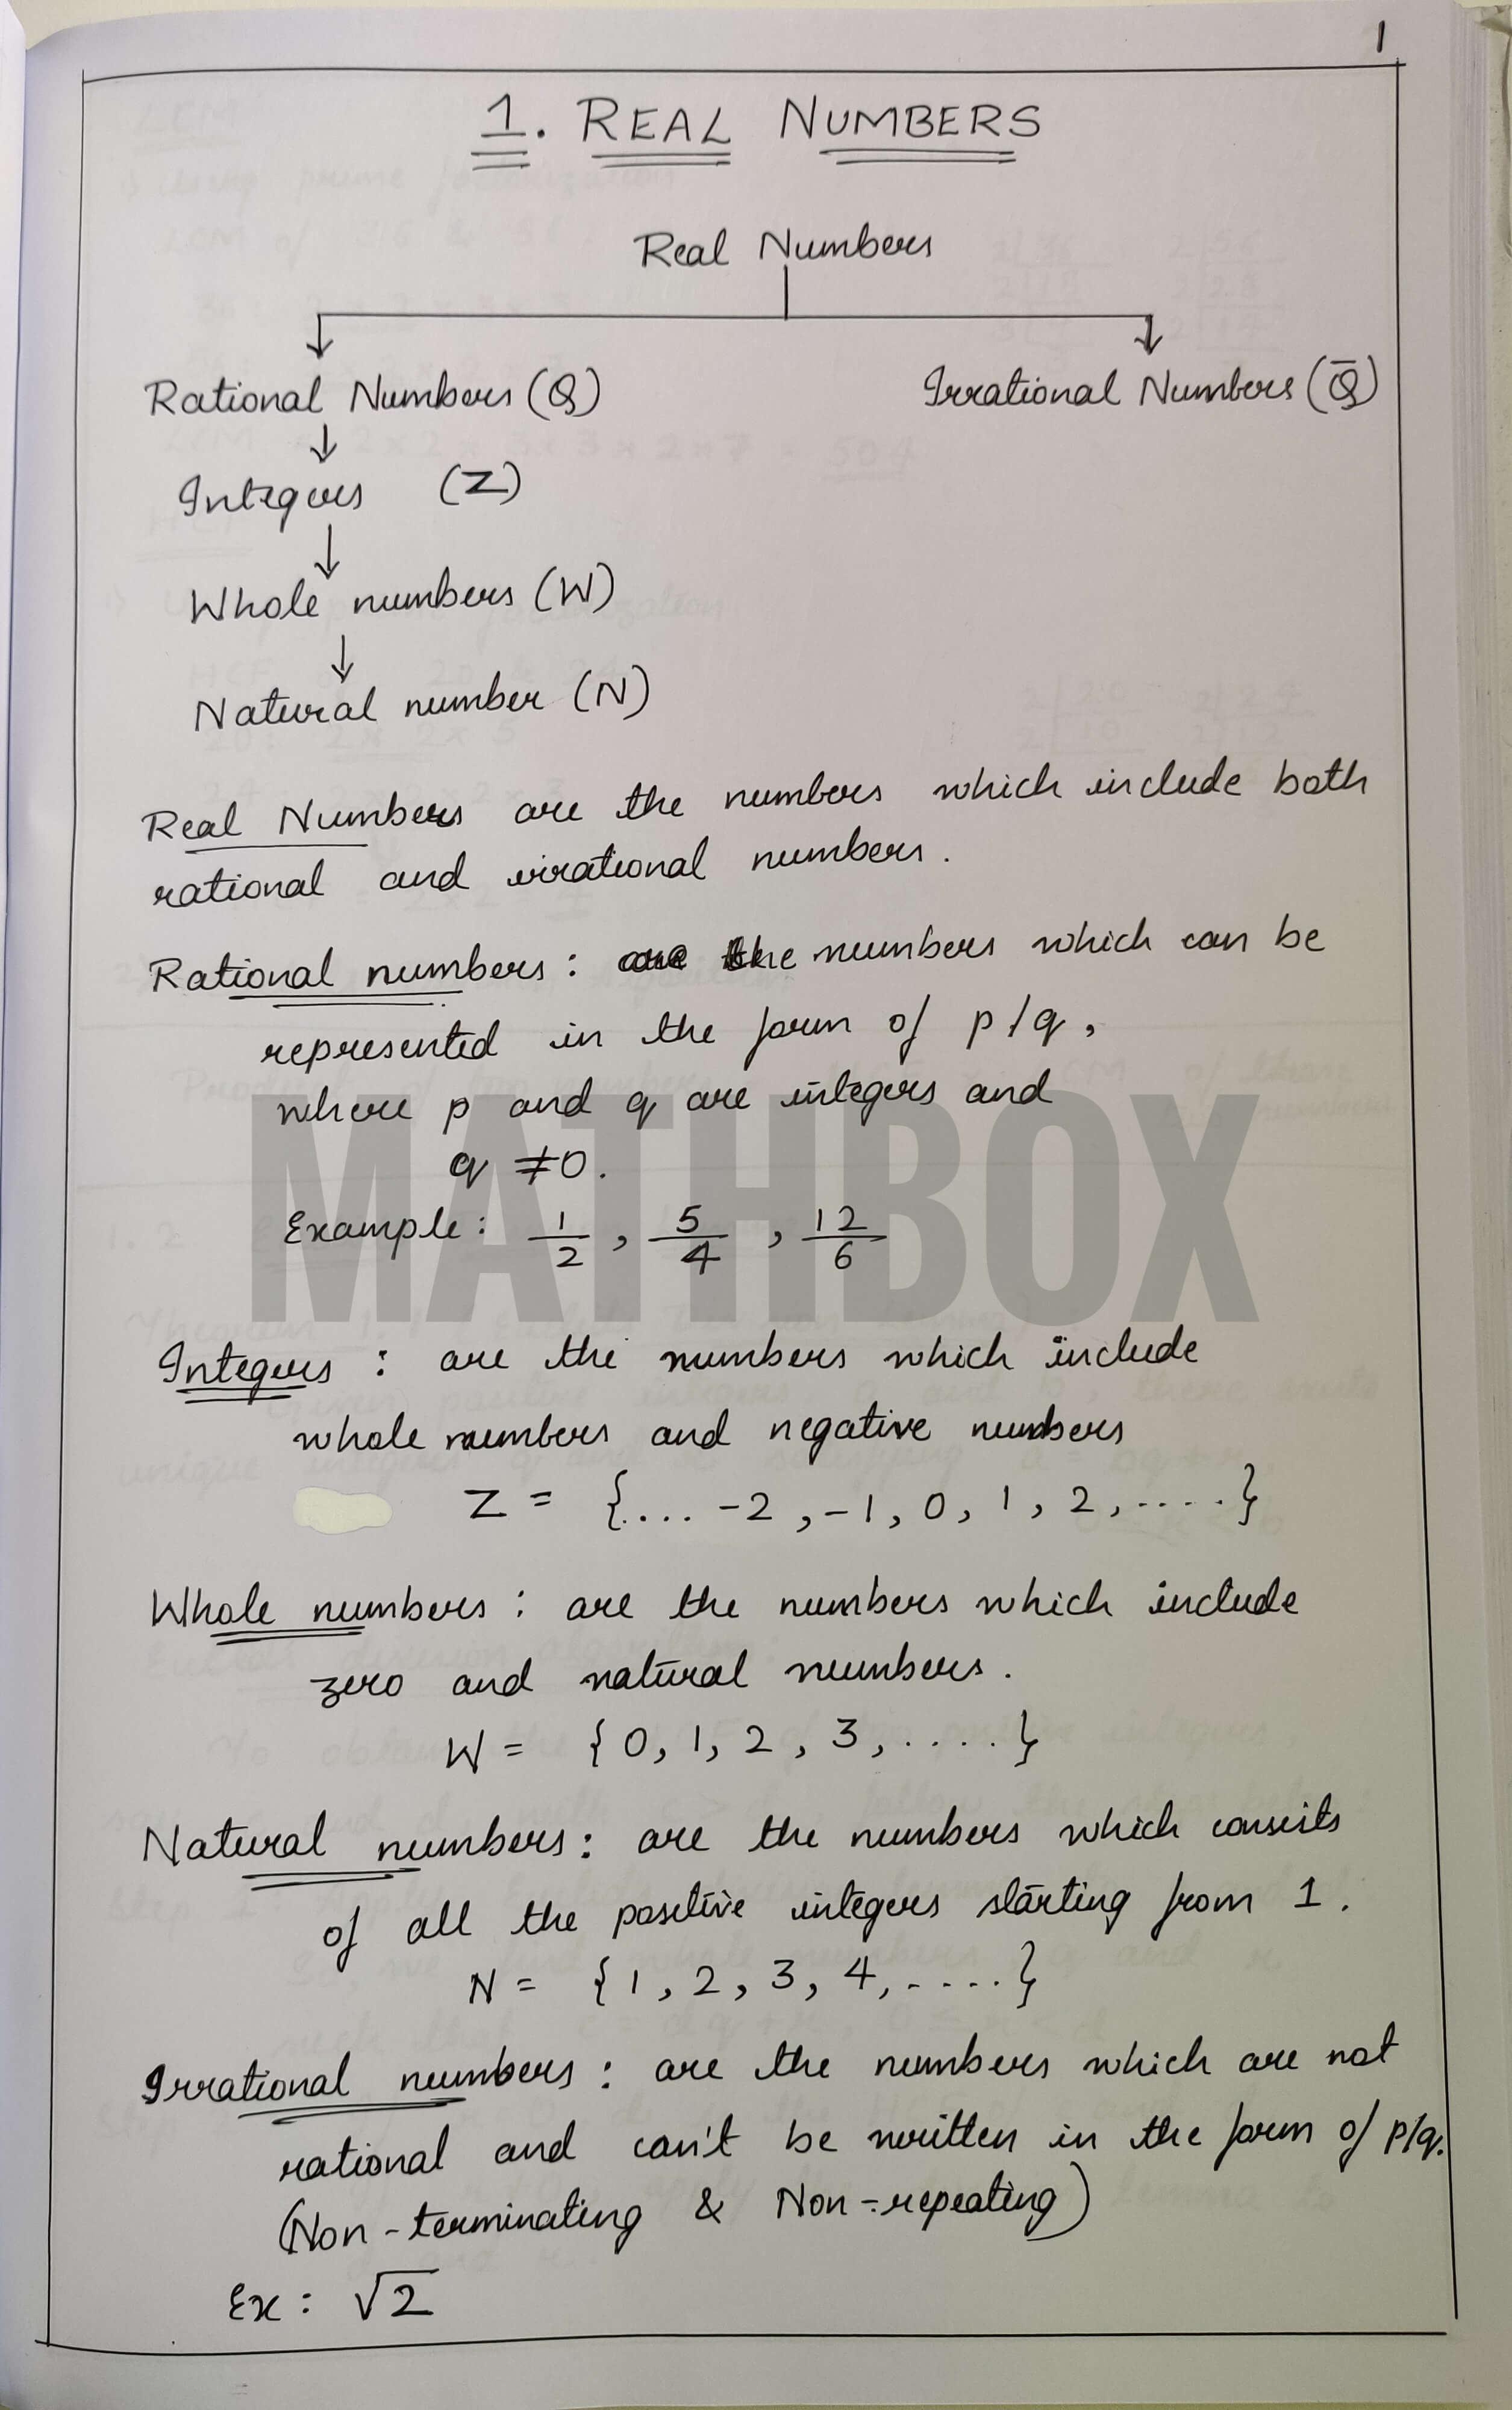 1
1. REAL NUMBERS
Real Numbers
Rational Numbers (Q)    Irrational Numbers (Q̅)
Integers (Z)
Whole numbers (W)
Natural number (N)
Real Numbers are the numbers which include both
rational and irrational numbers.
Rational numbers: are the numbers which can be
represented in the form of p/q,
where p and q are integers and
q ≠0.
Example: 1/2, 5/4, 12/6
MATHBOX
Integers : are the numbers which include
whole numbers and negative numbers
Z = {... -2, -1, 0, 1, 2, .....}
Whole numbers : are the numbers which include
zero and natural numbers.
W = {0, 1, 2, 3, .....}
Natural numbers: are the numbers which consists
of all the positive integers starting from 1.
N = {1, 2, 3, 4, .....}
Irrational numbers : are the numbers which are not
rational and can't be written in the form of p/q.
(Non-terminating & Non-repeating)
Ex : √2